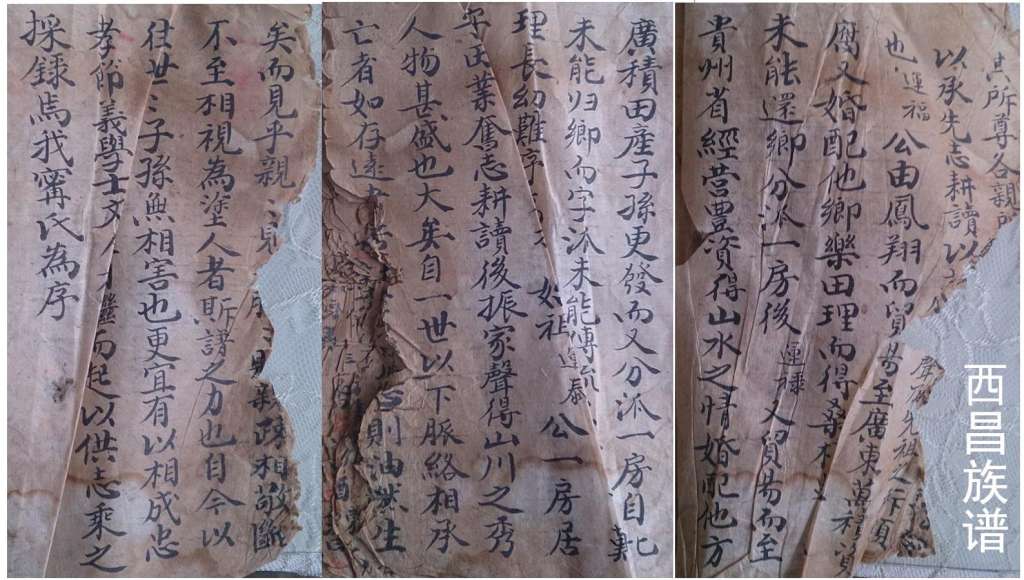 其所尊各親所
以承先志耕讀以
也運福公由鳳翔而貿昜至廣東萬
腐又婚配他鄉樂田理而得桑
未能還鄉分派一房後運祿又貿昜而至
貴州省經营豊资得山水之情婚配他方
廣積田産子孫更發而又分派一房自
未能归鄉而字派未能傳流運泰
理長幼難字 如祖公一房居
子正業奮志耕讀後振家聲得山川之秀
人物甚盛也大矣自一世以下脈絡相承
亡者如存遠 則油然生
矣而見乎親 疎相敬斷
不至相視為塗人者斯譜之力也自今以
往世〻子孫無相害也更宜有以相成忠
孝節義學士文人 以供志乘之
採録焉我甯氏為序
西昌族谱